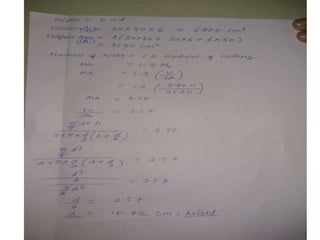 Given = h = d
Volume(V) = 30x30x6 = 5400 cm³
Surface Area (SA) = 2(30x30 + 30x6 + 6x30)
= 2520 cm²
Modulus of Riser = 1.2 modulus of casting
MR = 1.2 Mc
MR = 1.2 (V/SA)
= 1.2 (5400/2520)
MR = 2.57
VR/SAR = 2.57
π/4 d² h / 2xπx d/2 (h + d/2) = 2.57
π/4 d³ / 2xπx d/2 (d + d/2) = 2.57
d³/4 / 3/2 d² = 2.57
d/6 = 2.57
d = 15.42 cm = height